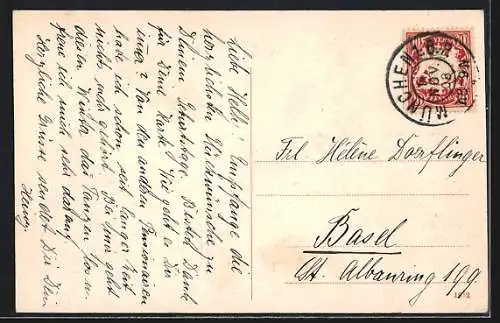 Lieb Helli! Empfange die
herzlichsten Glückwünsche zu
Deinem Geburtstage. Besten Dank
für Deine Karte. Wie geht es Dir
immer? Von den andren Pensionären
habe ich schon seit langer Zeit
nichts mehr gehört. Bei uns geht
diesen Winter das Tanzen los u.
freue ich mich sehr darauf.
Herzliche Grüsse sendet Dir Dein
MÜNCHEN
Frl Hélène Dorflinger
Basel
St. Albanring 199.
1212